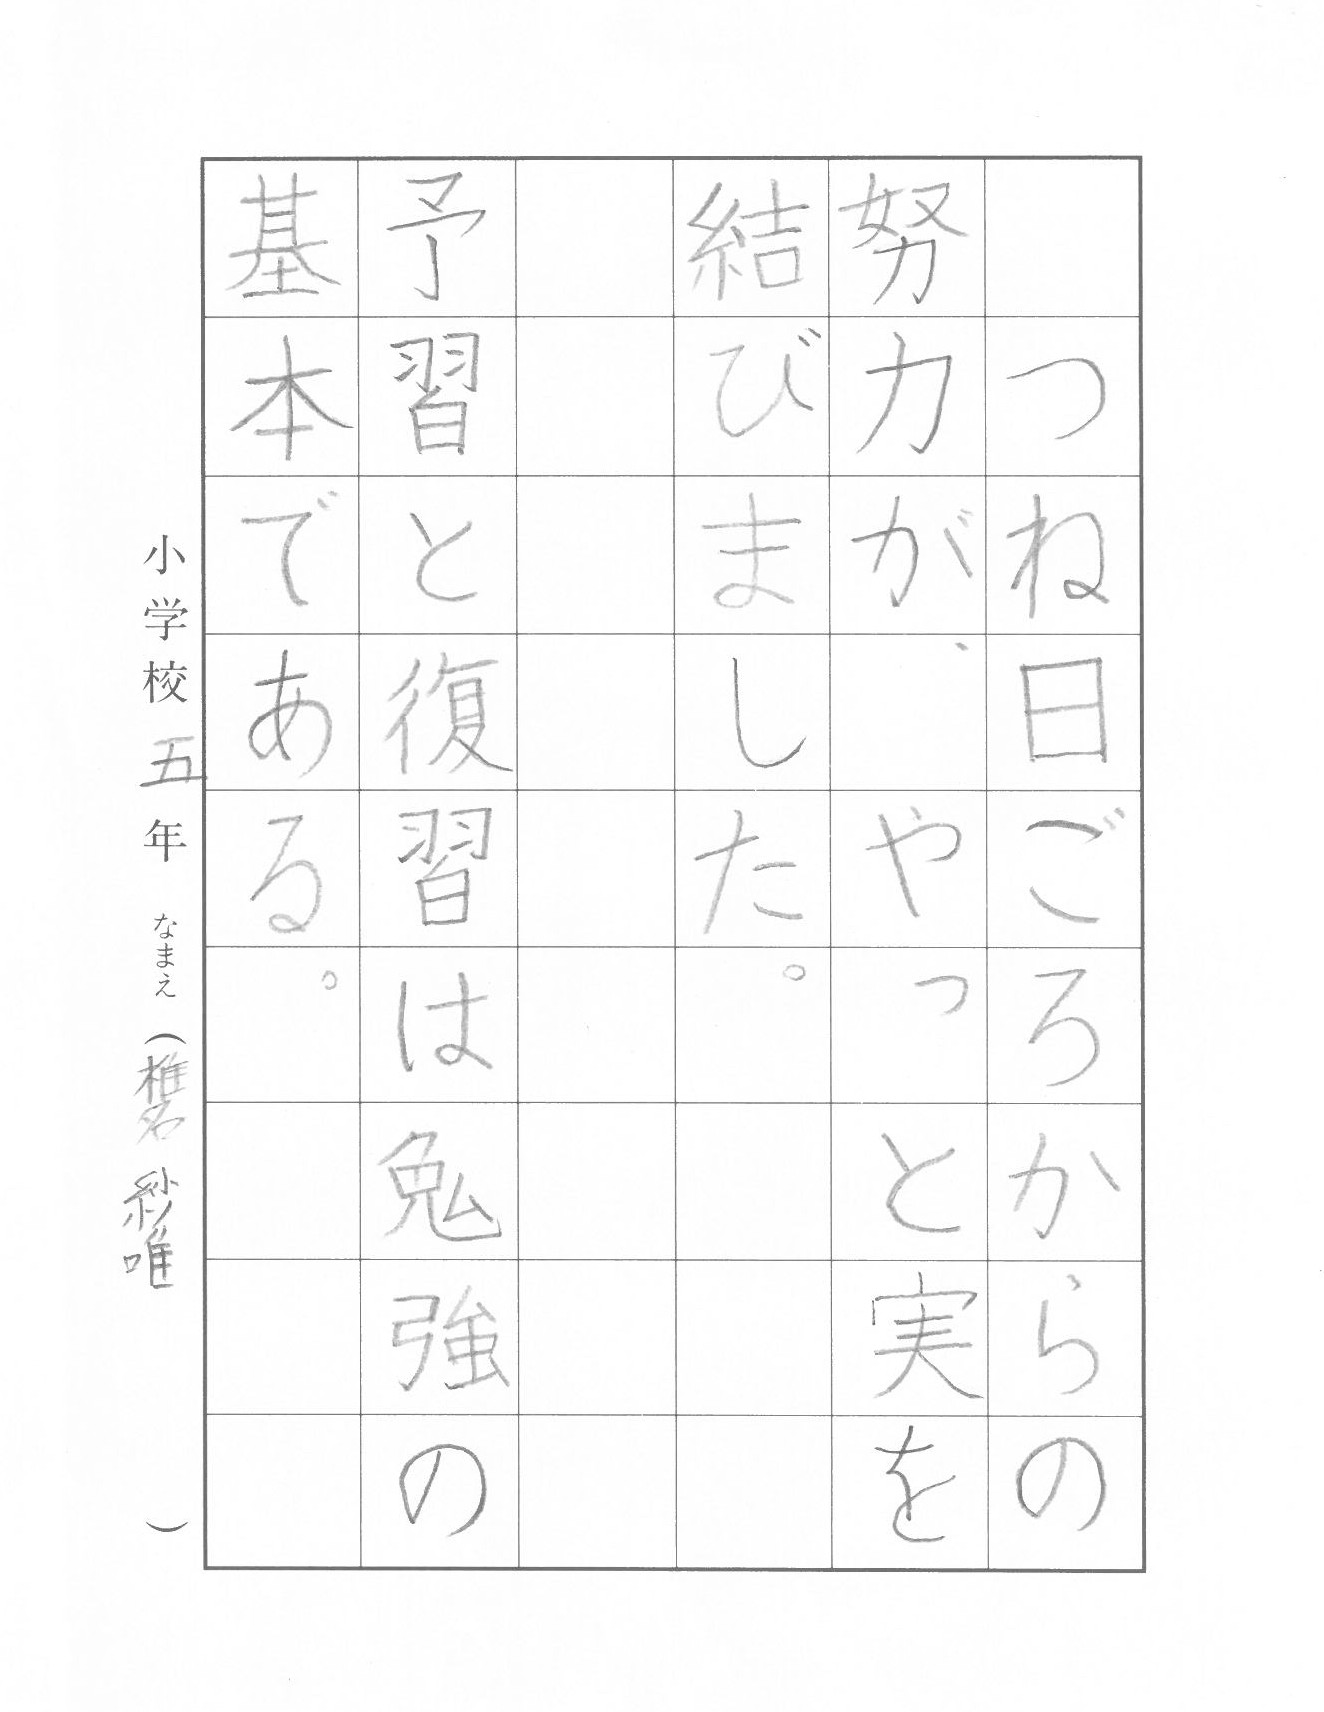 つね日ごろからの
努力が、やっと実を
結びました。
予習と復習は勉強の
基本である。
小学校五年 なまえ(椎名 紗唯)